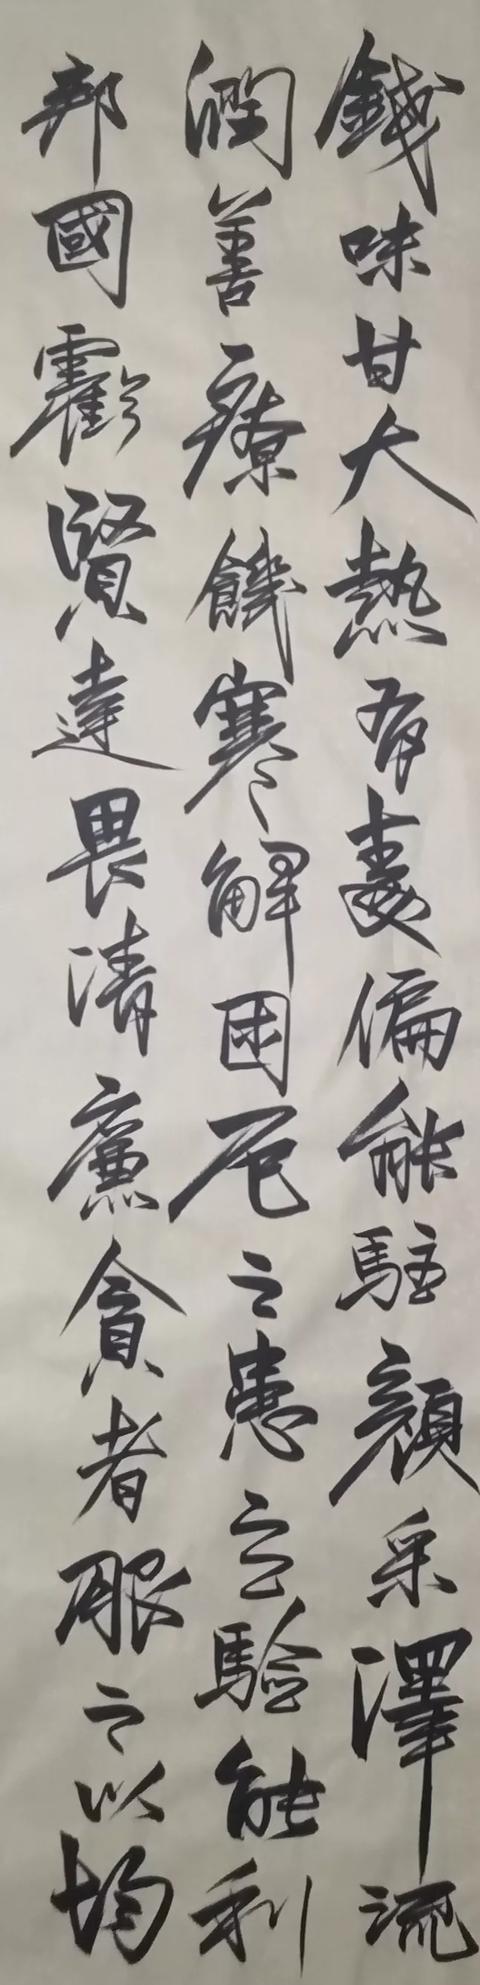 錢味甘大熱有毒偏能駐顏采澤流
潤善療饑寒解困厄之患立驗能利
邦國虧賢達畏清廉貪者服之以均